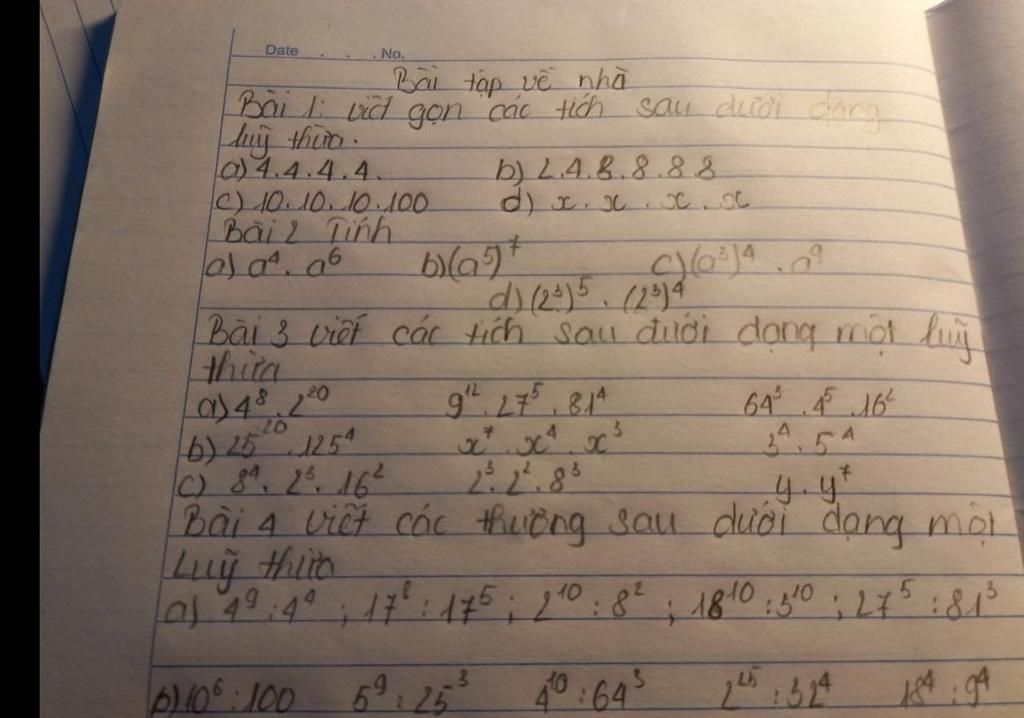 Date . . . No.
Bài tập về nhà
Bài 1: viết gọn các tích sau dưới dạng
luỹ thừa.
a) 4.4.4.4. b) 2.4.8.8.8.8
c) 10.10.10.100 d) x.x.x.x
Bài 2 Tính
a) a⁴.a⁶ b) (a⁵)⁷ c) (a³)⁴.a⁹
d) (2³)⁵.(2³)⁴
Bài 3 viết các tích sau dưới dạng một luỹ
thừa
a) 4⁸.2²⁰ 9¹².27⁵.81⁴ 64³.4⁵.16²
b) 25²⁰.125⁴ x⁷.x⁴.x³ 3⁴.5⁴
c) 8⁴.2³.16² 2³.2².8³ y.y⁷
Bài 4 viết các thường sau dưới dạng một
Luỹ thừa
a) 4⁹:4⁴; 17⁸:17⁵; 2¹⁰:8²; 18¹⁰:3¹⁰; 27⁵:81³
b) 10⁶:100 5⁹:25³ 4¹⁰:64³ 2²⁵:32⁴ 18⁴:9⁴